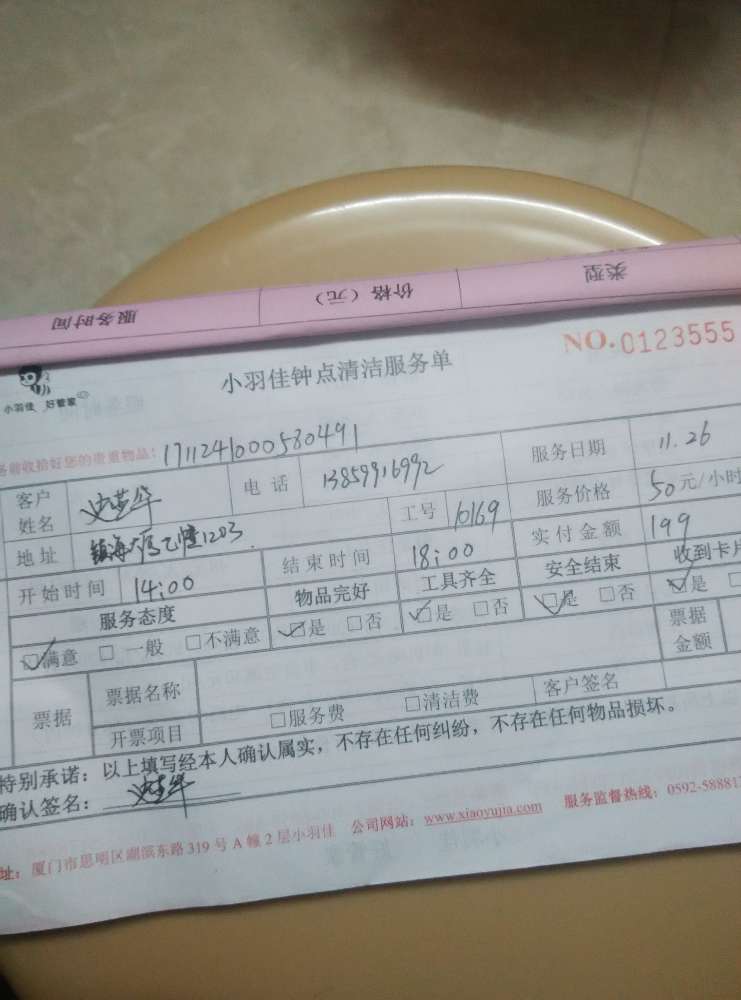 服务时间 价格（元） 类型
NO.0123555
小羽佳 好管家
小羽佳钟点清洁服务单
收拾好您的贵重物品：1711241000580491
客户姓名 电话 13859916992 服务日期 11.26
地址 镇海 乙幢1203 工号 10169 服务价格 50元/小时
开始时间 14:00 结束时间 18:00 实付金额 199
服务态度 物品完好 工具齐全 安全结束 收到卡片
☑满意 □一般 □不满意 ☑是 □否 ☑是 □否 ☑是 □否 ☑是
票据 票据名称 票据金额
开票项目 □服务费 □清洁费 客户签名
特别承诺：以上填写经本人确认属实，不存在任何纠纷，不存在任何物品损坏。
确认签名：
址：厦门市思明区湖滨东路319号A幢2层小羽佳 公司网站：www.xiaoyujia.com 服务监督热线：0592-58881